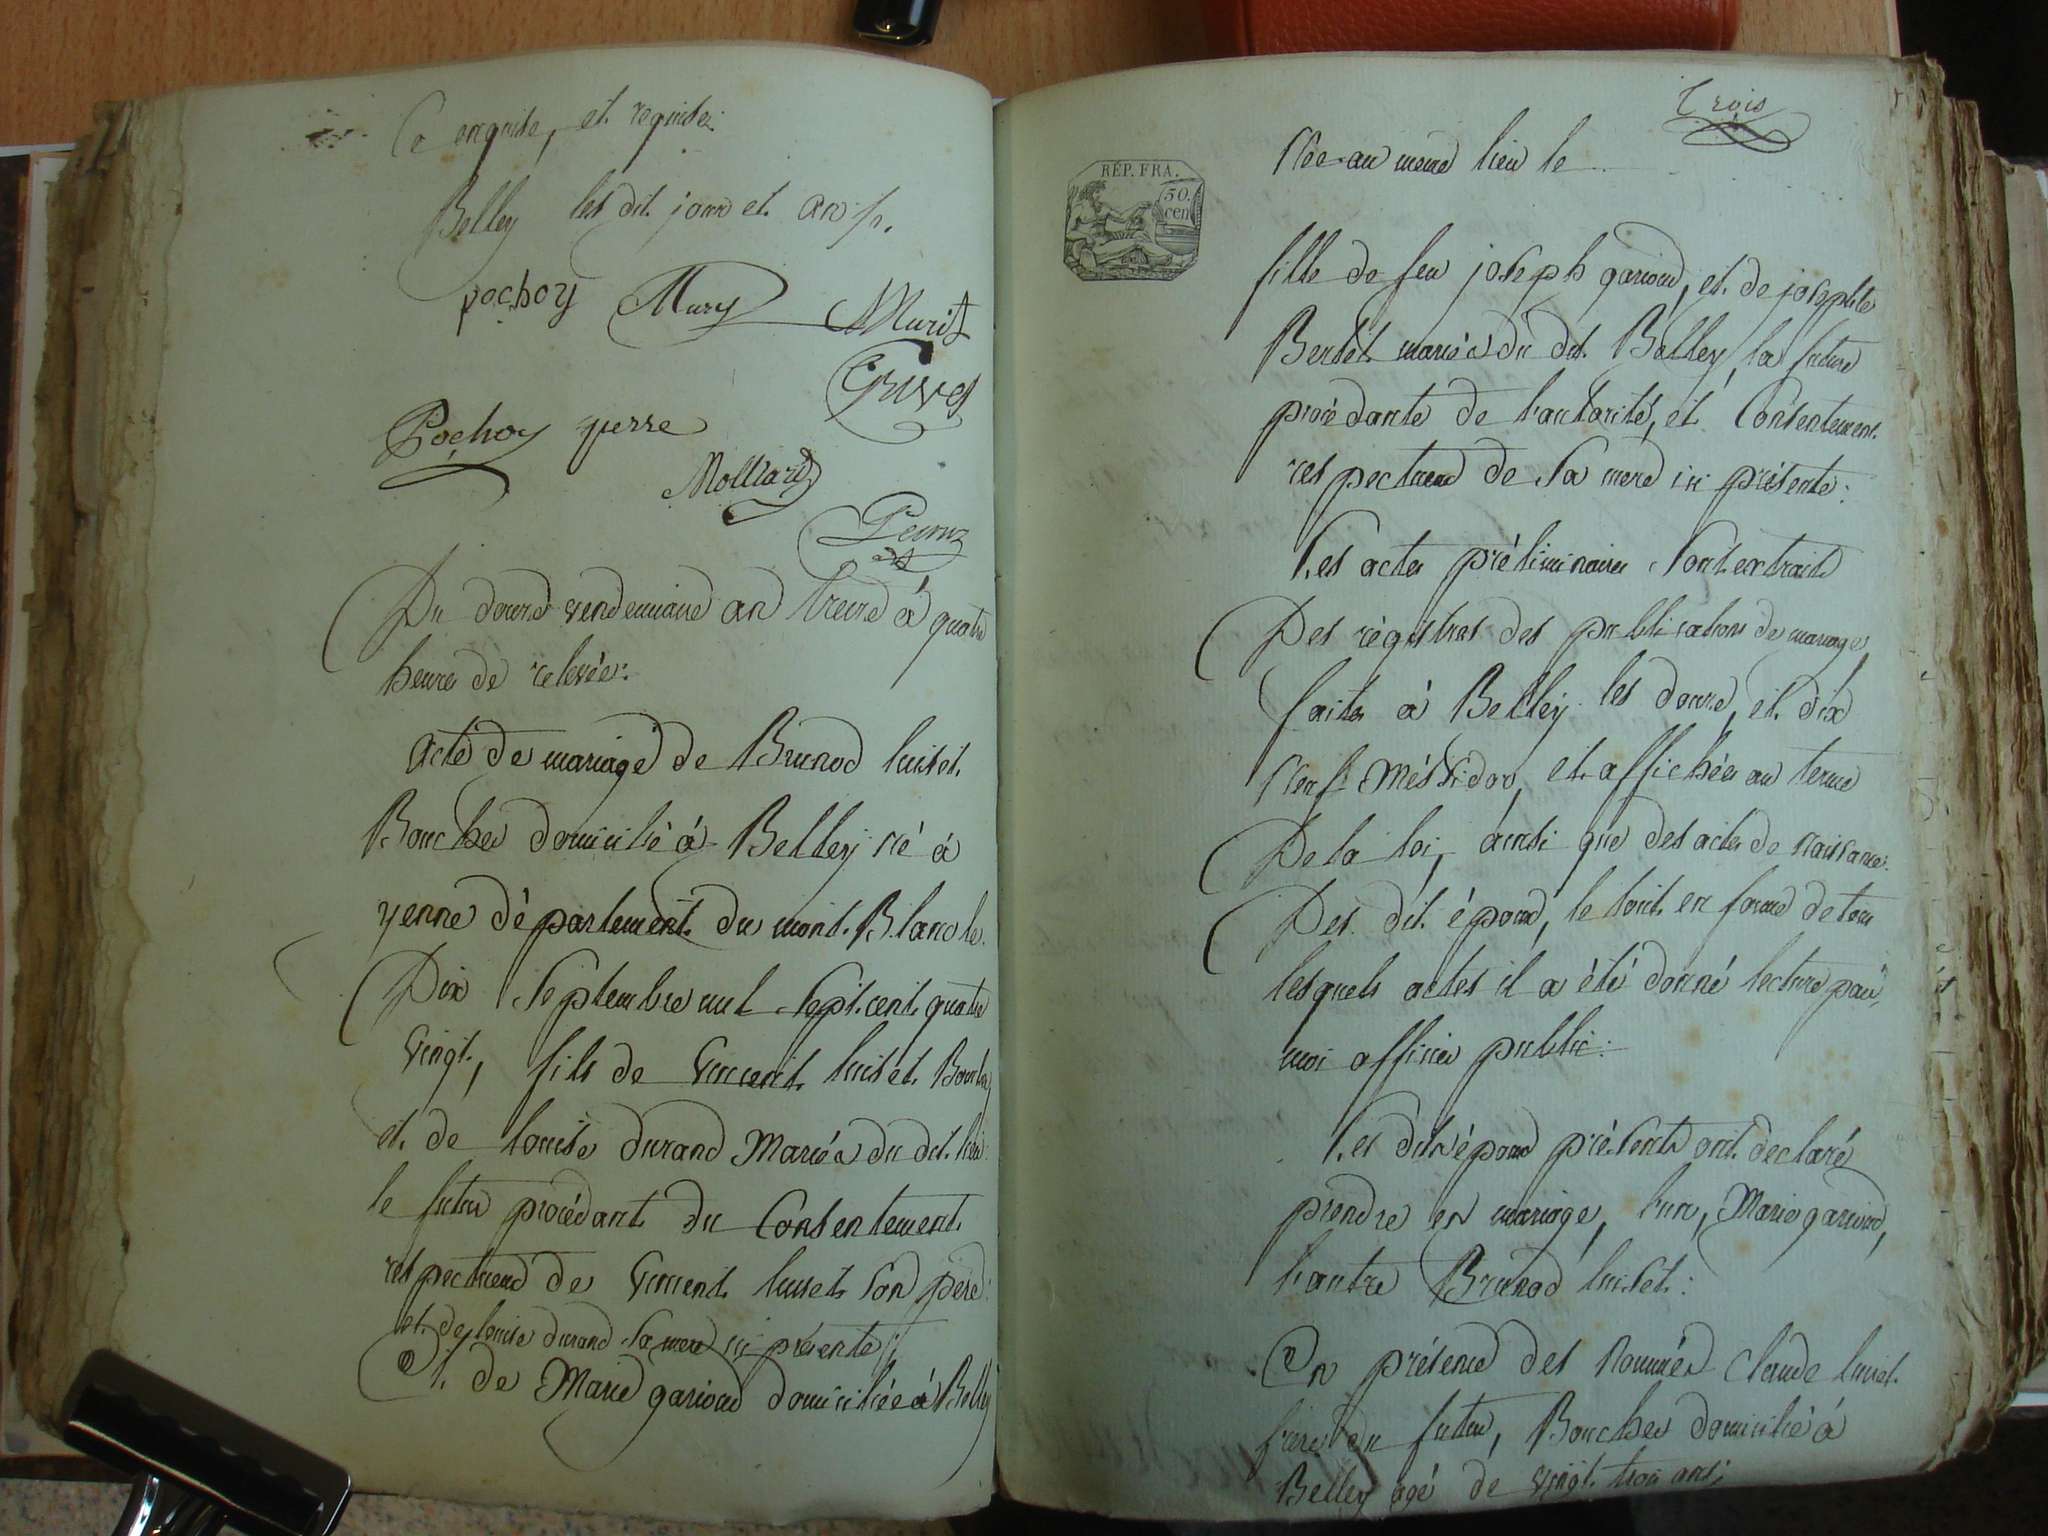 Ce enquise, et requise:
Belley les dit jour et an /.
pochoy Mury Murit
Grivet
Pochoy pierre
Molliard
Du douze vendemiaire an treize à quatre
heure de relevée:
acte de mariage de Brunod luiset
Boucher domicilié à Belley né à
yenne département du mont-Blanc le
Dix Septembre mil Sept cent quatre
vingt, fils de Vincent luiset Boucher
et de louise durand Mariés du dit lieu
le futur procédant du Consentement
respectueux de Vincent luiset Son père
et de louise durand Sa mere ici présente;
Et de Marie garioud domiciliée à Belley
Trois
RÉP. FRA.
50.
cen
Née au meme lieu le
fille de feu joseph garioud, et de josephte
Bertet mariés du dit Belley, la future
procédante de l'autorité, et Consentement
respectueux de Sa mere ici présente:
Les actes préliminaires Sont extraits
Des régistres des publications de mariage,
faites à Belley les douze, et dix
Neuf Méssidor, et affichés au terme
De la loi, ainsi que des actes de Naissance
Des dit époux, le tout en forme de tous
lesquels actes il a été donné lecture par
moi officier public:
Les dits époux présents ont declaré
prendre en mariage, l'un, Marie garioud,
l'autre Brunod luiset:
En présence des Nommés Claude luiset
frere du futur, Boucher domicilié à
Belley agé de vingt trois ans;